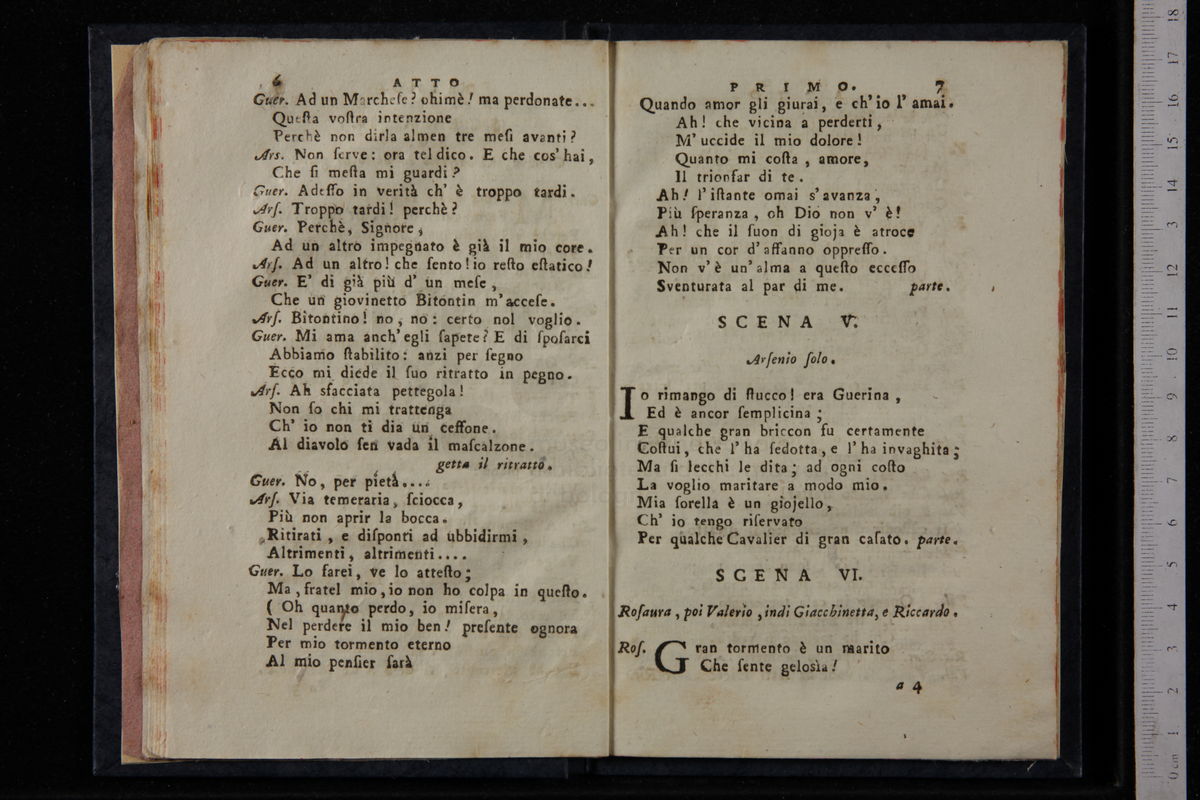 6 ATTO
Guer. Ad un Marchese? ohimè! ma perdonate...
Queſta voſtra intenzione
Perchè non dirla almen tre meſi avanti?
Ars. Non ſerve: ora tel dico. E che cos' hai,
Che ſi meſta mi guardi?
Guer. Adeſſo in verità ch' è troppo tardi.
Arſ. Troppo tardi! perchè?
Guer. Perchè, Signore,
Ad un altro impegnato è già il mio core.
Arſ. Ad un altro! che ſento! io reſto eſtatico!
Guer. E' di già più d' un meſe,
Che un giovinetto Bitontin m' acceſe.
Arſ. Bitontino! no, no: certo nol voglio.
Guer. Mi ama anch' egli ſapete? E di ſpoſarci
Abbiamo ſtabilito: anzi per ſegno
Ecco mi diede il ſuo ritratto in pegno.
Arſ. Ah sfacciata pettegola!
Non ſo chi mi trattenga
Ch' io non ti dia un ceffone.
Al diavolo ſen vada il maſcalzone.
getta il ritratto.
Guer. No, per pietà....
Arſ. Via temeraria, ſciocca,
Più non aprir la bocca.
Ritirati, e diſponti ad ubbidirmi,
Altrimenti, altrimenti....
Guer. Lo farei, ve lo atteſto;
Ma, fratel mio, io non ho colpa in queſto.
( Oh quanto perdo, io miſera,
Nel perdere il mio ben! preſente ognora
Per mio tormento eterno
Al mio penſier ſarà
PRIMO. 7
Quando amor gli giurai, e ch' io l' amai.
Ah! che vicina a perderti,
M' uccide il mio dolore!
Quanto mi coſta, amore,
Il trionfar di te.
Ah! l' iſtante omai s' avanza,
Più ſperanza, oh Dio non v' è!
Ah! che il ſuon di gioja è atroce
Per un cor d' affanno oppreſſo.
Non v' è un' alma a queſto ecceſſo
Sventurata al par di me. parte.
SCENA V.
Arſenio ſolo.
Io rimango di ſtucco! era Guerina,
Ed è ancor ſemplicina;
E qualche gran briccon fu certamente
Coſtui, che l' ha ſedotta, e l' ha invaghita;
Ma ſi lecchi le dita; ad ogni coſto
La voglio maritare a modo mio.
Mia ſorella è un giojello,
Ch' io tengo riſervato
Per qualche Cavalier di gran caſato. parte.
SCENA VI.
Roſaura, poi Valerio, indi Giacchinetta, e Riccardo.
Roſ. Gran tormento è un marito
Che ſente geloſìa!
a 4